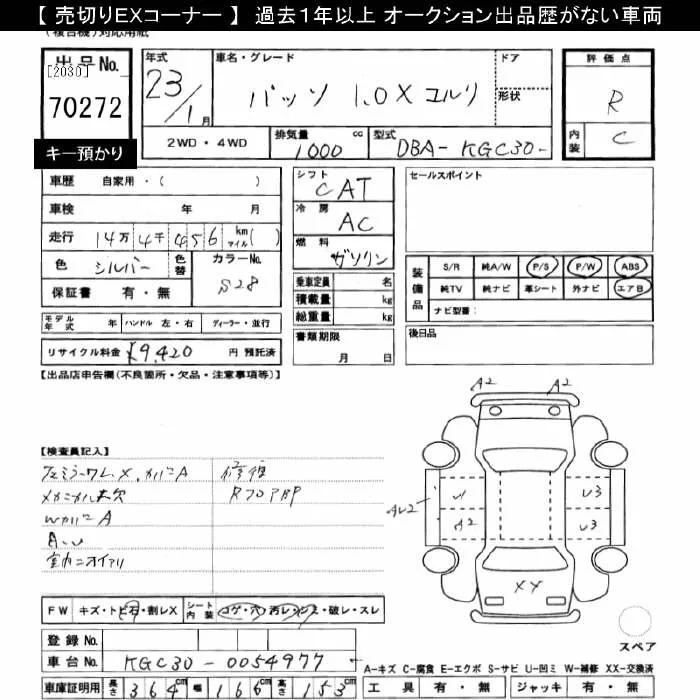 【 売切りEXコーナー 】 過去１年以上 オークション出品歴がない車両
(複合機)対応用紙
出品No.
[2030]
70272
キー預かり
年式 23/1月
車名・グレード パッソ 1.0X ユルリ
ドア
形状
2WD・4WD
排気量 1000 cc
型式 DBA-KGC30-
評価点 R
内装 C
車歴 自家用・( )
車検 年 月
走行 14万4千456 km マイル( )
色 シルバー 色替 カラーNo. S28
保証書 有・無
シフト CAT
冷房 AC
燃料 ガソリン
乗車定員 名
積載量 kg
総重量 kg
書類期限 月 日
セールスポイント
装備品
S/R 純A/W P/S P/W ABS
純TV 純ナビ 革シート 外ナビ エアB
ナビ型番:
モデル年式 年 ハンドル 左・右 ディーラー・並行
リサイクル料金 ¥9,420 円 預託済
後日品
【出品店申告欄(不良箇所・欠品・注意事項等)】
【検査員記入】
メカニカル
WカバーA
A・U
室内ニオイアリ
修復
A2 A2
AU2 U1 A2 U3 U3
XX
スペア
FW キズ・トビ石・割レX シート内装 コゲ・穴・汚レ・シミ・破レ・スレ
登録No.
車台No. KGC30-0054977
車庫証明用 長さ 364cm 幅 166cm 高さ 153cm
A-キズ C-腐食 E-エクボ S-サビ U-凹ミ W-補修 XX-交換済
工具 有・無 ジャッキ 有・無